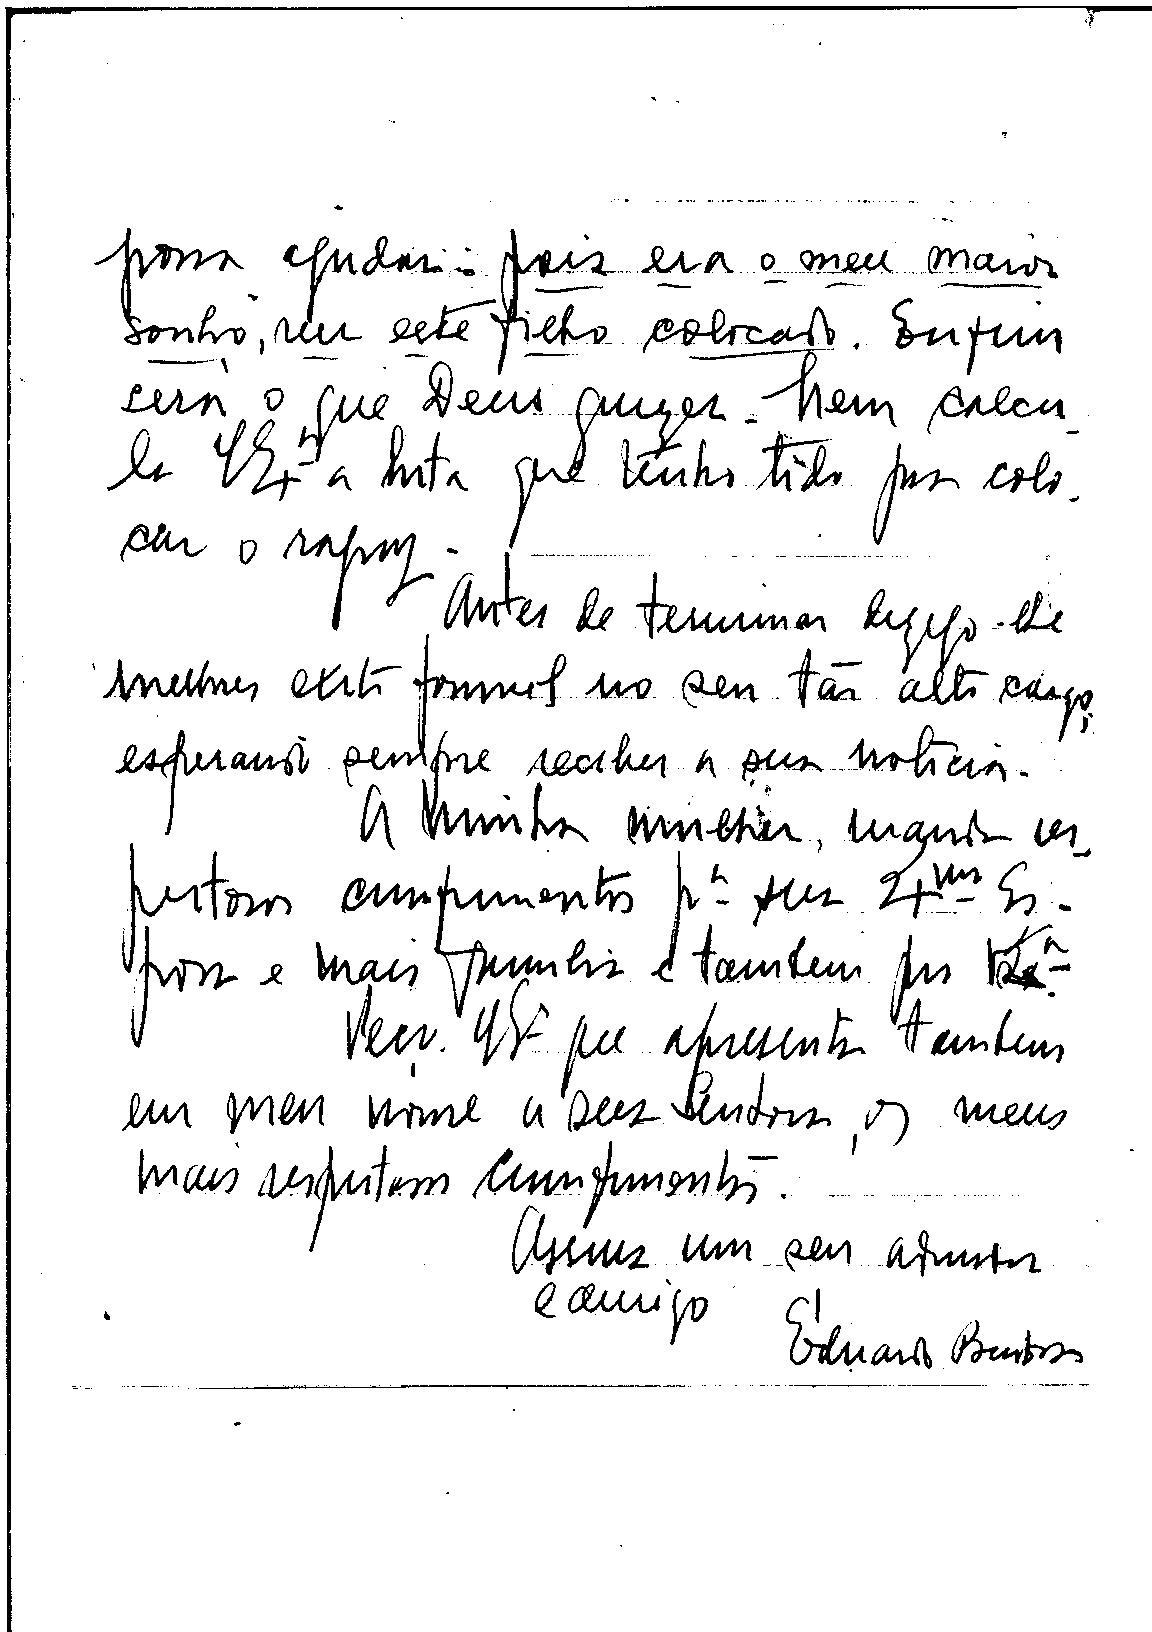 possa ajudar: pois era o meu maior
sonho, ver este filho colocado. Enfim
será o que Deus quizer. Nem calcu-
la V. Exª a luta que tenho tido para colo-
car o rapaz.
Antes de terminar desejo-lhe
melhores exito no seu tão alto cargo,
esperando sempre receber a sua noticia.
A minha mulher, manda res-
peitosos cumprimentos pª sua Exma Es-
posa e mais familia e tambem pª V. Exª
Peço. V. Exª que apresente tambem
em meu nome a sua Senhora, os meus
mais respeitosos cumprimentos.
Assina um seu admirador
e amigo
Eduardo